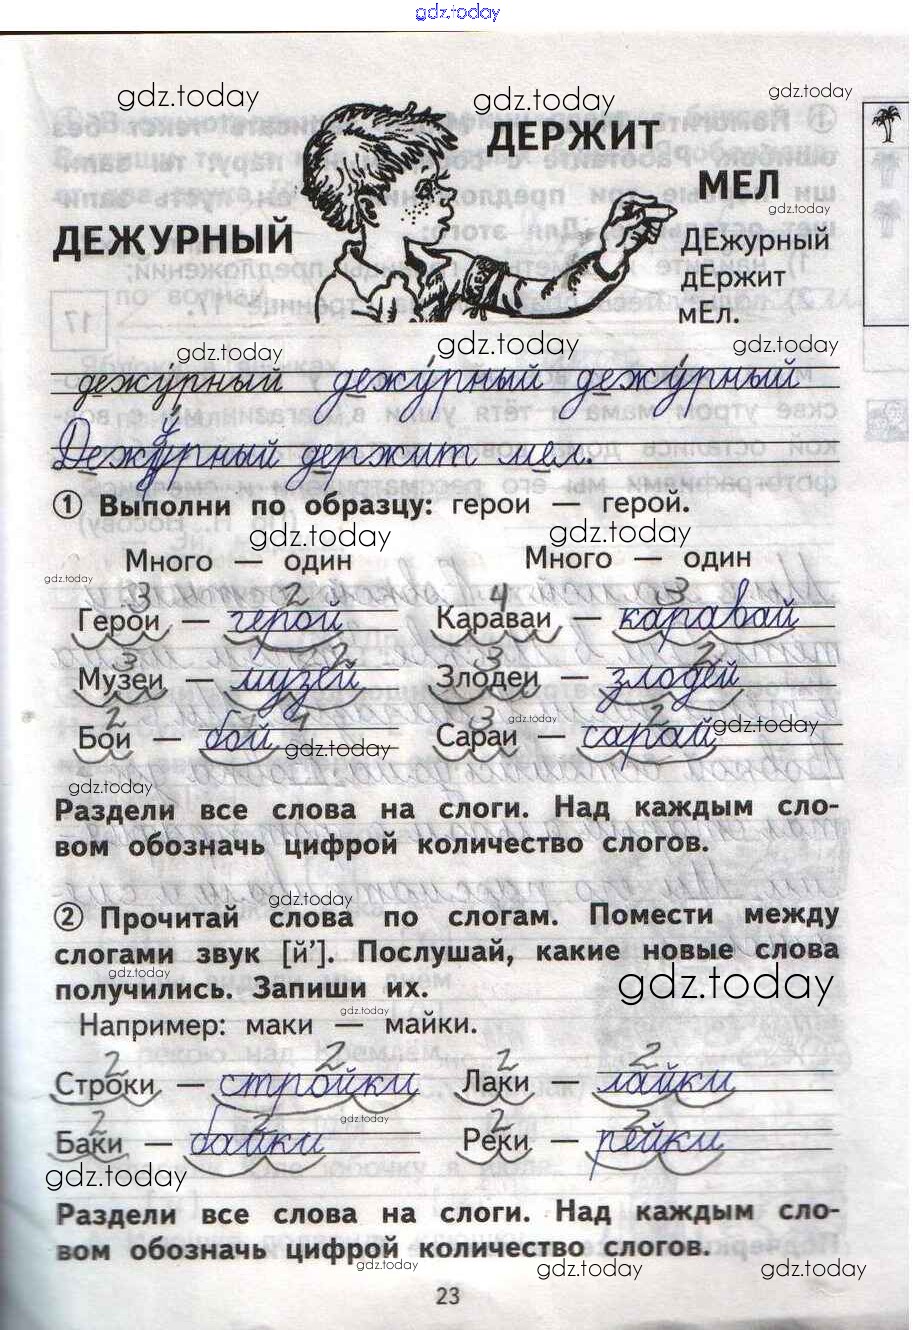 gdz.today
gdz.today gdz.today gdz.today
ДЕРЖИТ
МЕЛ
gdz.today
ДЕЖУРНЫЙ
ДЕжурный
дЕржит
мЕл.
17
gdz.today gdz.today gdz.today
дежу́рный дежу́рный дежу́рный
Дежу́рный держит мел.
1 Выполни по образцу: герои — герой.
gdz.today gdz.today
Много — один Много — один
gdz.today
3 2 4 3
Герои — герой Караваи — каравай
3 2 3 2
Музеи — музей Злодеи — злодей
2 1 3 gdz.today 2 gdz.today
Бои — бой Сараи — сарай
gdz.today
gdz.today
Раздели все слова на слоги. Над каждым сло-
вом обозначь цифрой количество слогов.
gdz.today
2 Прочитай слова по слогам. Помести между
слогами звук [й’]. Послушай, какие новые слова
gdz.today gdz.today
получились. Запиши их.
gdz.today
Например: маки — майки.
2 2 2 2
Строки — стройки Лаки — лайки
2 2 gdz.today 2 2
Баки — байки Реки — рейки
gdz.today
Раздели все слова на слоги. Над каждым сло-
вом обозначь цифрой количество слогов.
gdz.today gdz.today gdz.today
23